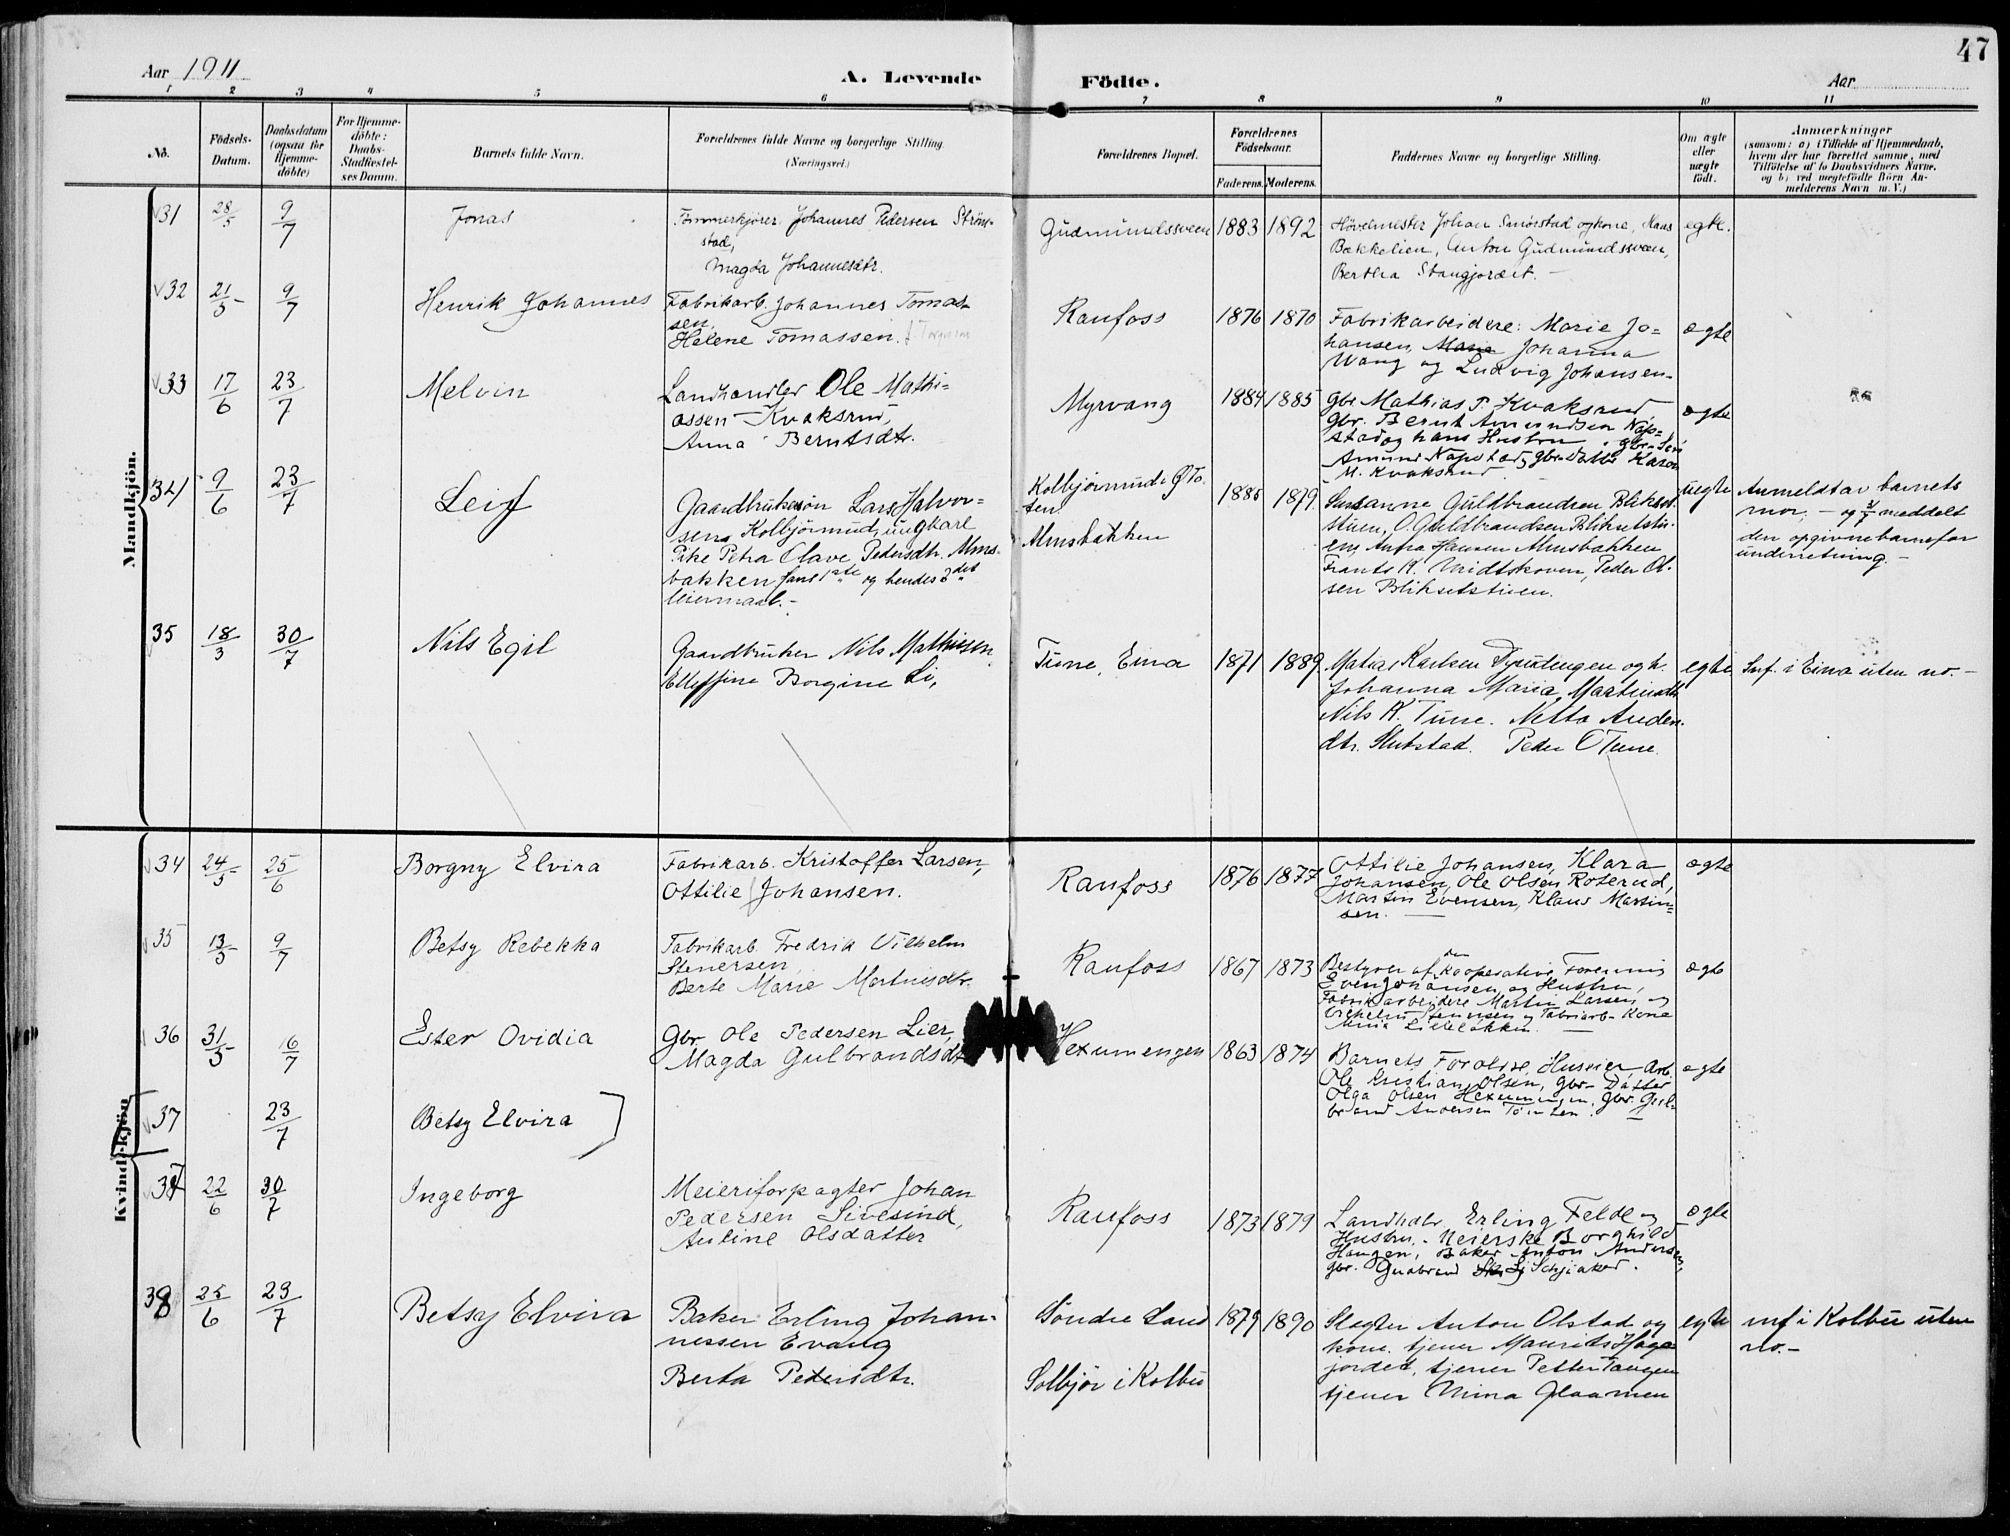 47
Aar 1911
A. Levende
Födte.
Aar
1 2 3 4 5 6 7 8 9 10 11
No.
Födsels-
Datum.
Daabsdatum
(ogsaa for
Hjemme-
döbte)
For Hjemme-
döbte:
Daabs-
Stadfæstel-
ses Datum.
Barnets fulde Navn.
Forældrenes fulde Navne og borgerlige Stilling
(Næringsvei.)
Forældrenes Bopæl.
Forældrenes
Födselsaar.
Faderens. Moderens.
Faddernes Navne og borgerlige Stilling.
Om ægte
eller
uægte
födt.
Anmærkninger
(saasom: a) i Tilfælde af Hjemmedaab,
hvem der har forrettet samme, med
Tilföielse af to Daabsvidners Navne,
og b) ved uægtefödte Börn An-
melderens Navn m. V.)
Mandkjön.
31 28/5 9/7 Jonas
Tømmerkjører Johannes Pedersen Ström-
stad,
Magda Johannesdtr.
Gudmundssveen 1883 1892
Høvelmester Johan Sanørstad og kone, Hans
Bakkelien, Anton Gudmundssveen,
Bertha Stangjordet. -
egte.
32 21/5 9/7 Henrik Johannes
Fabrikarb. Johannes Tomas-
sen,
Helene Tomassen.
Raufoss 1876 1870
Fabrikarbeidere: Marie Jo-
hansen, Johanna
Wang og Ludvig Johansen-
ægte
33 17/6 23/7 Melvin
Landhandler Ole Mathi-
assen Kvaksrud,
Anna Berntsdtr.
Myrvang 1884 1885
gbr Mathias P. Kvaksrud,
gbr. Bernt Amundsen Nap-
stad og hans Hustru, gbr. Søn
Amund Napstad, gbr. datter Karen
M. Kvaksrud
ægte
34 9/6 23/7 Leif
Gaardbrukersøn Lars Halvor-
sen Kolbjörnrud, ungkarl
Pike Petra Olave Pedersdtr. Alms-
bakken hans 1ste og hendes 2det
leiermaal.-
Kolbjörnrud i Ø. To-
ten
Almsbakken
1885 1879
Susanne Guldbrandsen Blikset-
stuen, O. Guldbrandsen Blikselstu-
en, Anna Hansen Almsbakken
Frants K. Midtskoven, Peder Ol-
sen Blikselstuen.
uegte
Anmeldt av barnets
mor, - og meddelt
den opgivne barnefar
underretning. -
35 18/3 30/7 Nils Egil
Gaardbruker Nils Mathisen
Ellefine Borgine Li,
Tune, Eina 1871 1889
Matias Karlsen Tyutengen og h.
Johanna Maria Martinsdtr
Nils K. Tune. Netta Anden-
dtr. Slutstad. Peder O Tune.
egte
Inf. i Eina uten no. -
Kvindekjön
34 24/5 25/6 Borgny Elvira
Fabrikarb. Kristoffer Larsen,
Ottilie Johansen.
Raufoss 1876 1877
Ottilie Johansen, Klara
Johansen, Ole Olsen Roterud,
Martin Evensen, Klaus Martin-
sen.
ægte
35 13/5 9/7 Betsy Rebekka
Fabrikarb. Fredrik Vilhelm
Stenersen,
Berte Marie Martinsdtr.
Raufoss 1867 1873
Bestyrer af den kooperative Forening
Even Johansen og Hustru,
Fabrikarbeidere Martin Larsen, og
Vilhelm Stenersen og Fabriarb. Kone
Mina Lillebakken.
ægte
36 31/5 16/7 Ester Ovidia
Gbr Ole Pedersen Lier,
Magda Gulbrandsdtr
Hexumengen 1863 1874
Barnets Forældre, Husmier, Arb.
Ole Kristian Olsen, gbr Datter
Olga Olsen Hexumengen, gbr. Gul-
brand Andersen
ægte
37 23/7 Betsy Elvira
37 22/6 30/7 Ingeborg
Meieriforpagter Johan
Pedersen Sivesind,
Auline Olsdatter
Raufoss 1873 1879
Landhdlr. Erling Felde og
Hustru, Meierske Borghild
Haugen, Baker Anton Andersen,
gbr. Gudbrand Schjiaker.
ægte
38 25/6 23/7 Betsy Elvira
Baker Erling Johan-
nessen Evang
Berta Pedersdtr.
Söndre Land
Solbjör i Kolbu
1879 1890
Slagter Anton Olstad og
kone, tjener Maurits Haga-
jordet, tjener Petter Haugen
tjener Mina Glaamen
egte
inf i Kolbu uten
no.-